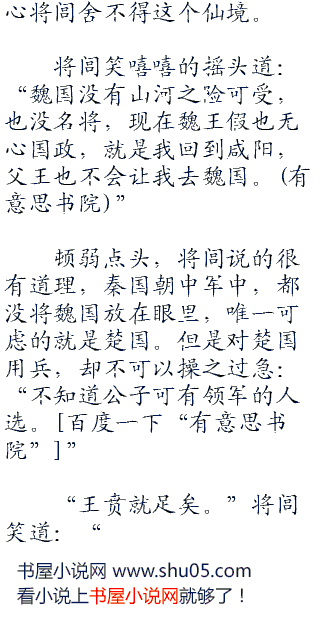 心将闾舍不得这个仙境。
将闾笑嘻嘻的摇头道：
“魏国没有山河之险可受，
也没名将，现在魏王假也无
心国政，就是我回到咸阳，
父王也不会让我去魏国。(有
意思书院)”
顿弱点头，将闾说的很
有道理，秦国朝中军中，都
没将魏国放在眼里，唯一可
虑的就是楚国。但是对楚国
用兵，却不可以操之过急：
“不知道公子可有领军的人
选。[百度一下“有意思书
院”]”
“王贲就足矣。”将闾
笑道：“
书屋小说网 www.shu05.com
看小说上书屋小说网就够了！